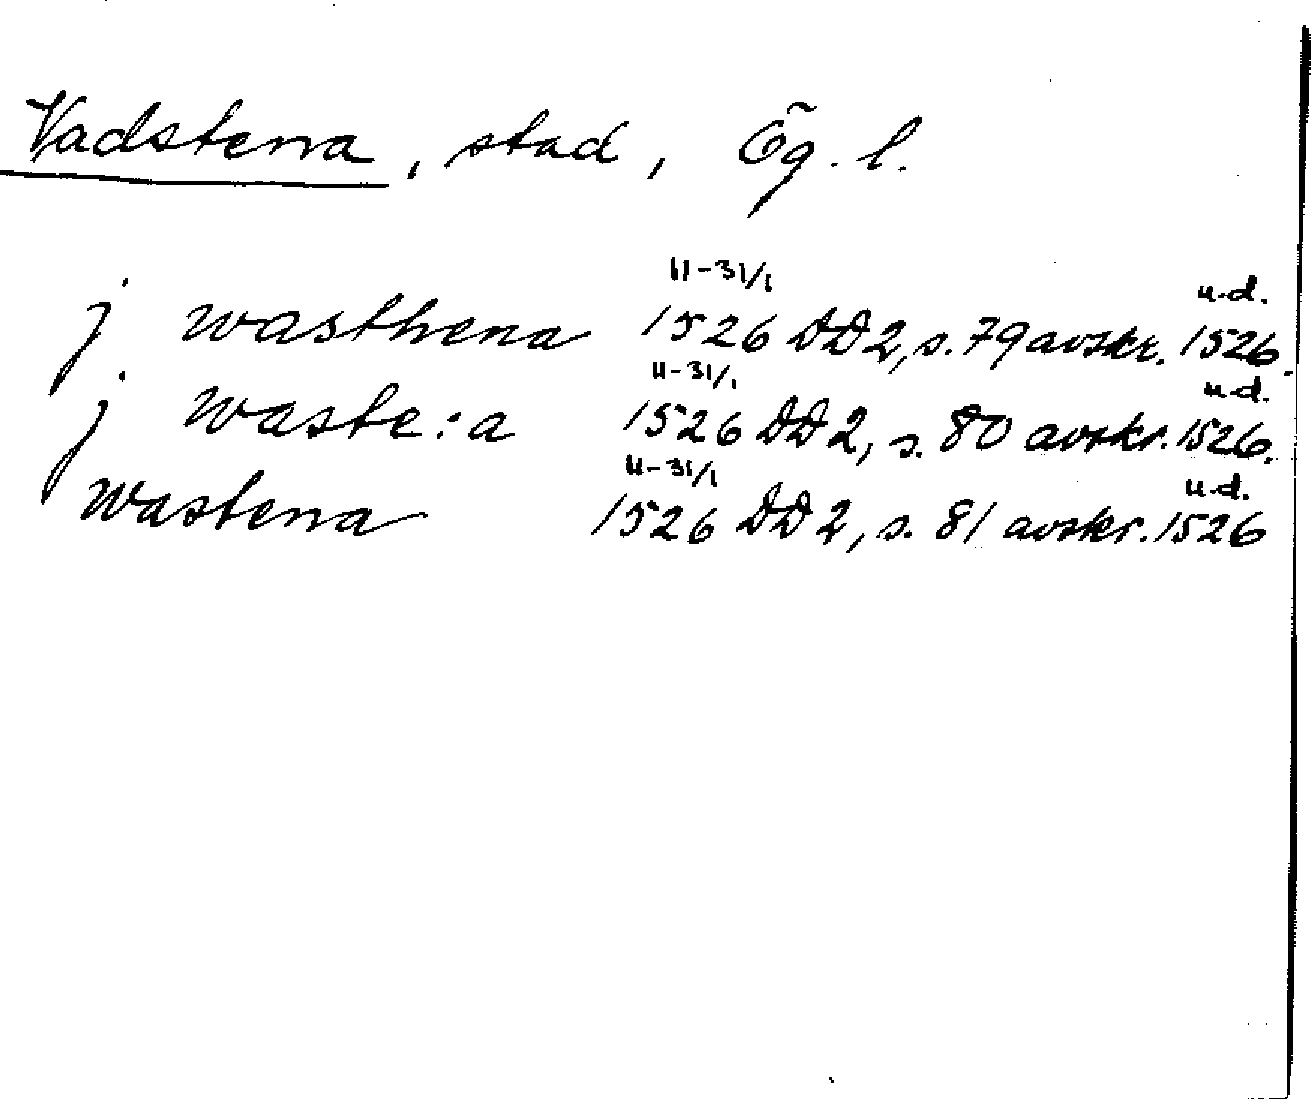 Vadstena, stad, Ög. l.
11-31/1 u.d.
j wasthena 1526 DD2, s. 79 avskr. 1526.
11-31/1 u.d.
j waste:a 1526 DD2, s. 80 avskr. 1526.
11-31/1 u.d.
wastena 1526 DD2, s. 81 avskr. 1526